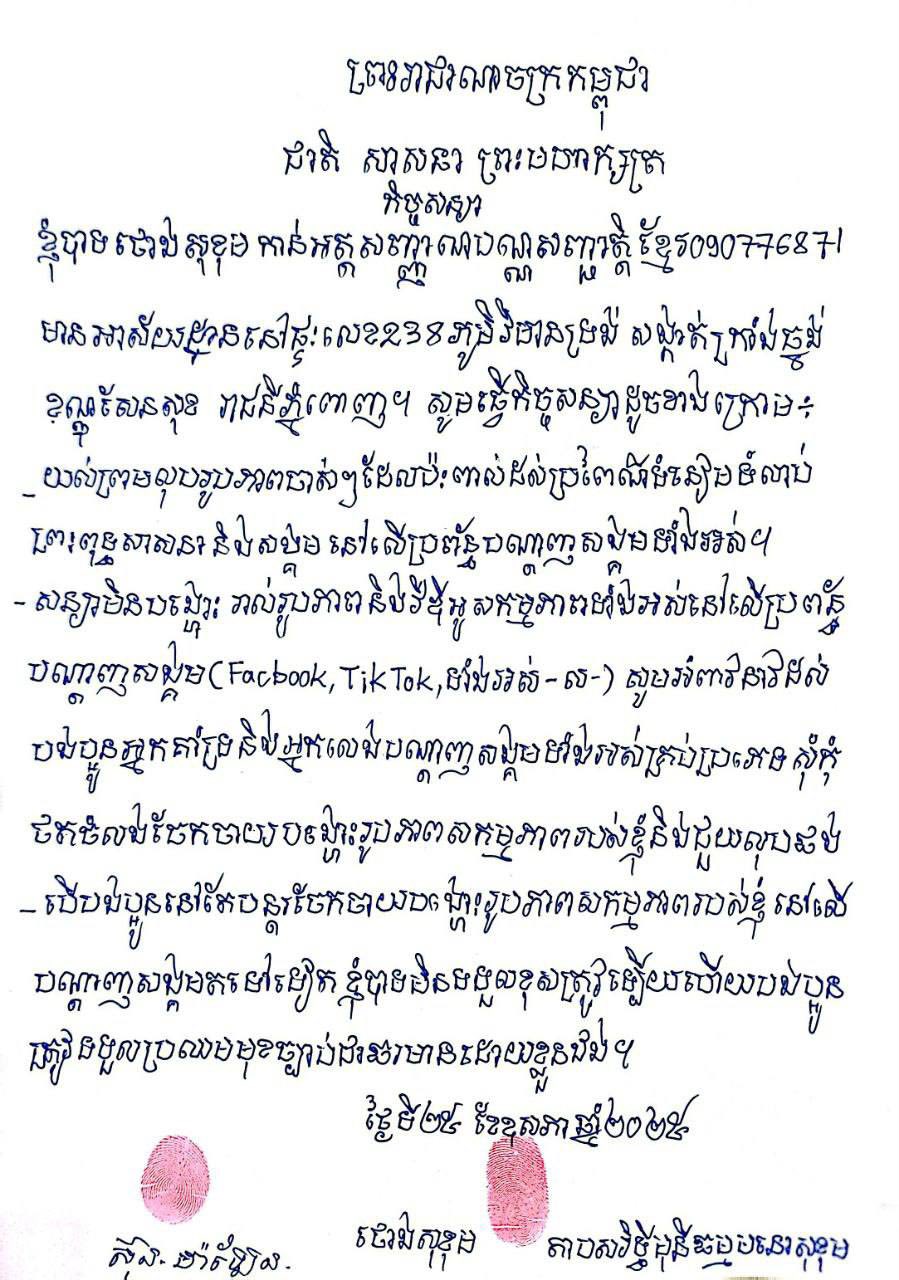 ព្រះរាជាណាចក្រកម្ពុជា
ជាតិ សាសនា ព្រះមហាក្សត្រ
កិច្ចសន្យា
ខ្ញុំបាទ ថោង សុខុម កាន់អត្តសញ្ញាណបណ្ណសញ្ជាតិខ្មែរ090776871
មានអាស័យដ្ឋាននៅផ្ទះលេខ238 ភូមិវិមានទ្រង់ សង្កាត់ក្រាំងធ្នង់
ខណ្ឌសែនសុខ រាជធានីភ្នំពេញ។ សូមធ្វើកិច្ចសន្យាដូចខាងក្រោម÷
_ យល់ព្រមលុបរូបភាពចាស់ៗដែលប៉ះពាល់ដល់ប្រពៃណីទំនៀមទំលាប់
ព្រះពុទ្ធសាសនា និងសង្គម នៅលើប្រព័ន្ធបណ្តាញសង្គមទាំងអស់។
- សន្យាមិនបង្ហោះ រាល់រូបភាពនិងវីឌីអូសកម្មភាពទាំងអស់នៅលើប្រព័ន្ធ
បណ្តាញសង្គម(Facbook, TikTok, ទាំងអស់-ល-) សូមអំពាវនាវដល់
បងប្អូនអ្នកគាំទ្រនិងអ្នកលេងបណ្តាញសង្គមទាំងអស់គ្រប់ប្រភេទ សុំកុំ
ថតចំលងចែកចាយបង្ហោះរូបភាពសកម្មភាពរបស់ខ្ញុំនិងជួយលុបផង
_ បើបងប្អូននៅតែបន្តរចែកចាយបង្ហោះរូបភាពសកម្មភាពរបស់ខ្ញុំ នៅលើ
បណ្តាញសង្គមតទៅទៀត ខ្ញុំបាទមិនទទួលខុសត្រូវឡើយហើយបងប្អូន
ត្រូវទទួលប្រឈមមុខច្បាប់ជាធរមានដោយខ្លួនឯង។
ថ្ងៃទី២៥ ខែឧសភា ឆ្នាំ២០២៥
ថោង សុខុម
តាបសរិទ្ធីមុនីធម្មបនោសុខុម